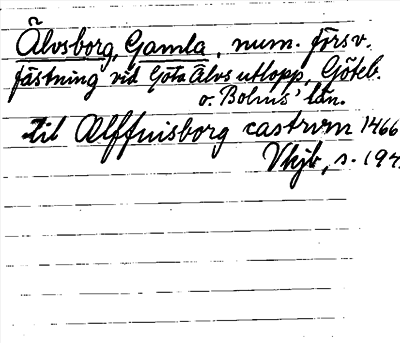 Älvsborg, Gamla, num. försv.
fästning vid Göta Älvs utlopp, Göteb.
o. Bohus' län.
til Ælffuisborg castrvm 1466
s. 194